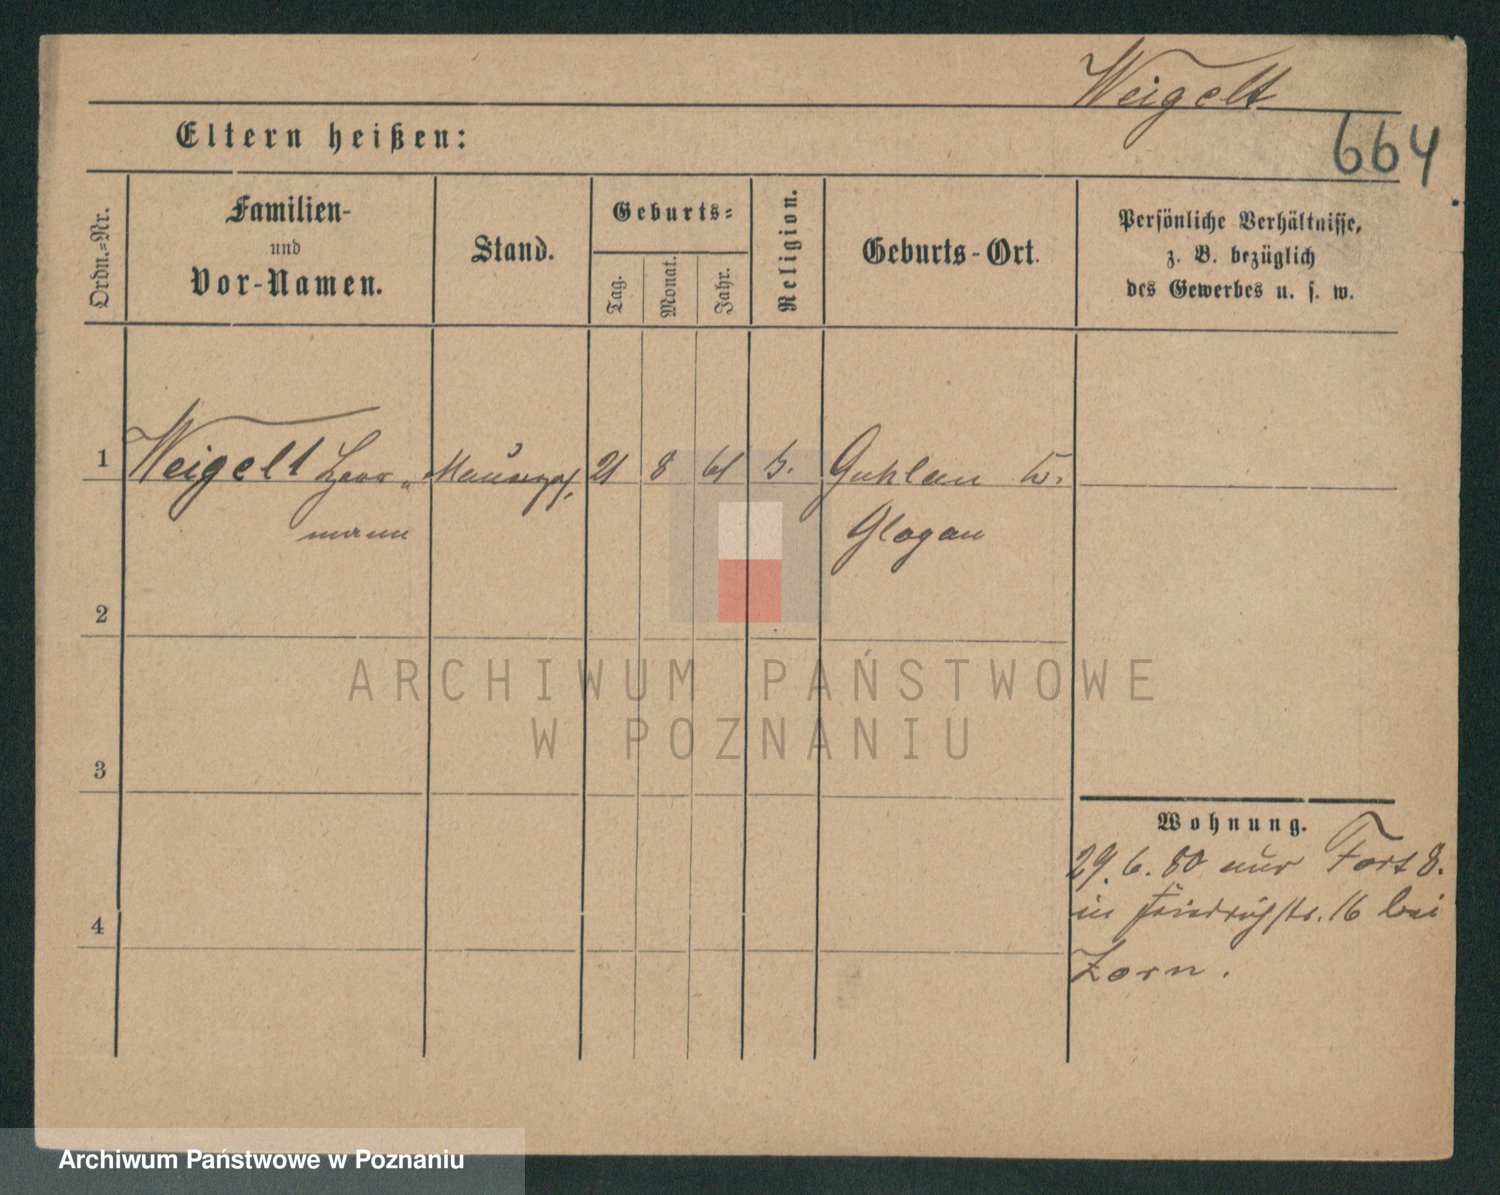 Weigelt
664
Eltern heißen:
Ordn.=Nr.
Familien-
und
Vor-Namen.
Stand.
Geburts=
Tag.
Monat.
Jahr.
Religion.
Geburts-Ort.
Persönliche Verhältnisse,
z. B. bezüglich
des Gewerbes u. s. w.
1
Weigelt Herr-
mann
21
8
61
Guhlau
Glogau
2
3
4
ARCHIWUM PAŃSTWOWE
W POZNANIU
Wohnung.
29. 6. 80 aus Fort 8.
in Friedrichstr. 16 bei
Zorn.
Archiwum Państwowe w Poznaniu